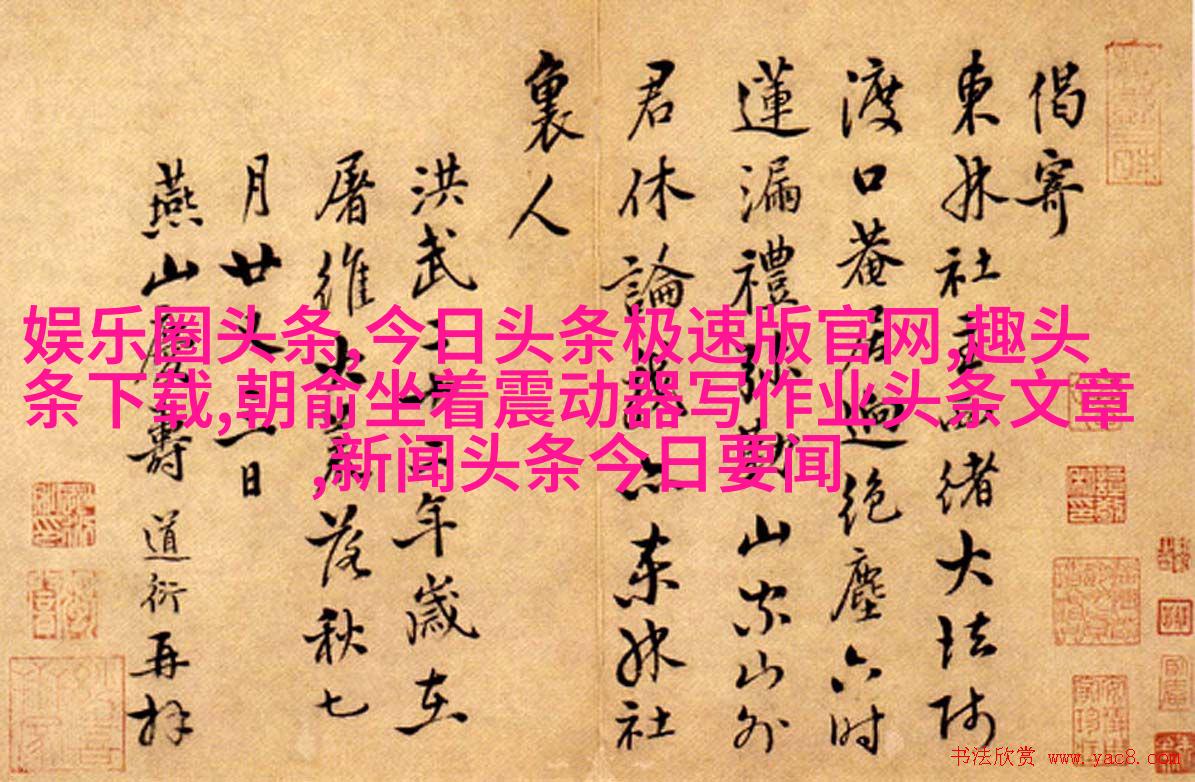 偈寄
東林社緒大法師
渡口菴居迥絕塵六時
蓮漏禮弥勒山家山外
君休論東林社
裏人
洪武二十二年歲在
屠維大荒落秋七
月廿又日
燕山慶壽道衍再拜
娱乐圈头条,今日头条极速版官网,趣头
条下载,朝俞坐着震动器写作业头条文章
,新闻头条今日要闻
书法欣赏 www.yac8.com